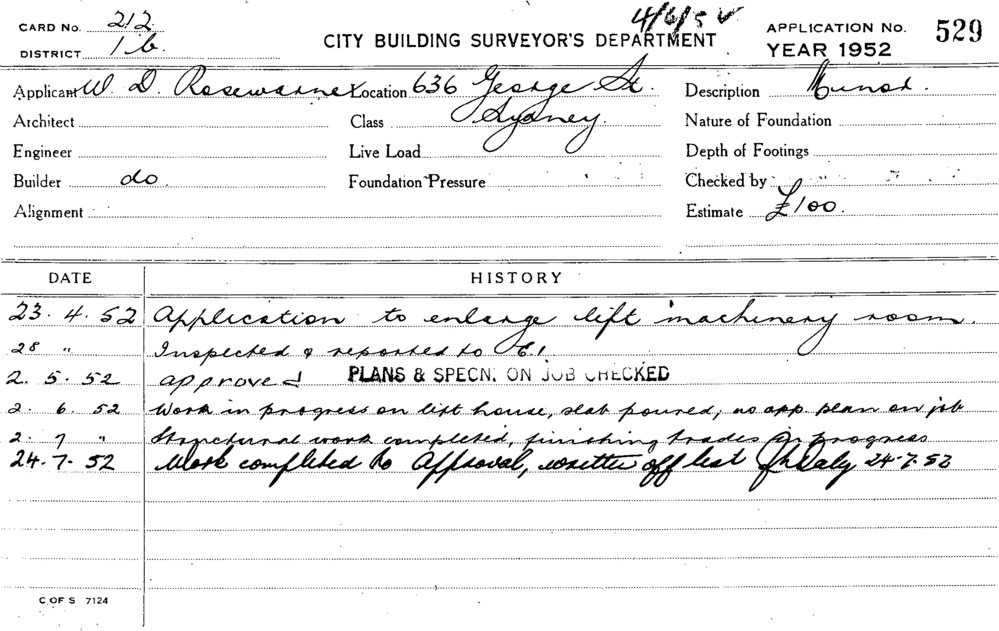 CARD No. 212
4/6/52
APPLICATION No. 529
DISTRICT 1b.
CITY BUILDING SURVEYOR'S DEPARTMENT
YEAR 1952
Applicant W. D. Rosewarne Location 636 George St. Description Minor.
Architect Class Sydney. Nature of Foundation
Engineer Live Load Depth of Footings
Builder do Foundation Pressure Checked by
Alignment Estimate £100.
DATE HISTORY
23. 4. 52 Application to enlarge lift machinery room.
28 " Inspected & reported to E.1
2. 5. 52 approved PLANS & SPECN. ON JOB CHECKED
2. 6. 52 Work in progress on lift house, slab poured, no app. plan on job
2. 7 " Structural work completed, finishing trades in progress
24. 7. 52 Work completed to Approval, written off list Daly 24-7-52
C OF S 7124